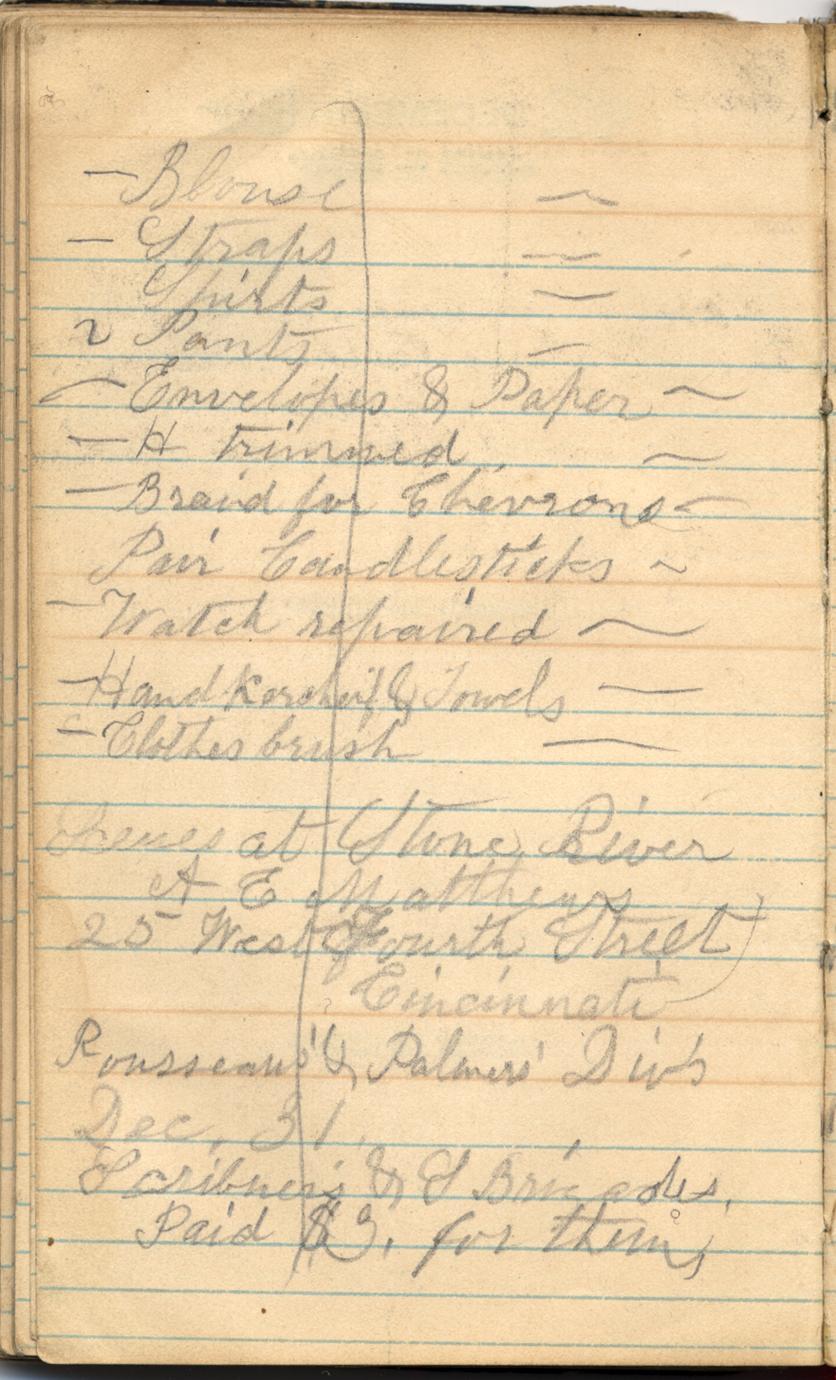 – Blouse –
– Straps –
Shirts –
2 Pants –
– Envelopes & Paper –
– H trimmed –
– Braid for Chevrons –
Pair Candlesticks –
– Watch repaired –
– Handkercheif & Towels –
– Clothes brush –
Scenes at Stone River
A E Matthews
25 West Fourth Street
Cincinnati
Rousseau's & Palmers' Div's
Dec. 31
Scribner's & S Brigades,
Paid $3. for them,